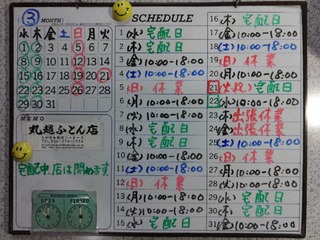 3 MONTH
水 木 金 土 日 月 火
1 2 3 4 5 6 7
8 9 10 11 12 13 14
15 16 17 18 19 20 21
22 23 24 25 26 27 28
29 30 31
MEMO
丸越ふとん店
宅配中、店は閉めます
OPEN CLOSED
SCHEDULE
1 (水) 宅配日
2 (木) 宅配日
3 (金) 10:00-18:00
4 (土) 10:00-18:00
5 (日) 休業
6 (月) 10:00-18:00
7 (火) 10:00-18:00
8 (水) 宅配日
9 (木) 宅配日
10 (金) 10:00-18:00
11 (土) 10:00-18:00
12 (日) 休業
13 (月) 10:00-18:00
14 (火) 10:00-18:00
15 (水) 宅配日
16 (木) 宅配日
17 (金) 10:00-18:00
18 (土) 10:00-18:00
19 (日) 休業
20 (月) 10:00-18:00
21 (火祝) 宅配日
22 (水) 宅配日
23 (木) 出張休業
24 (金) 出張休業
25 (土) 10:00-18:00
26 (日) 休業
27 (月) 10:00-18:00
28 (火) 10:00-18:00
29 (水) 宅配日
30 (木) 宅配日
31 (金) 10:00-18:00